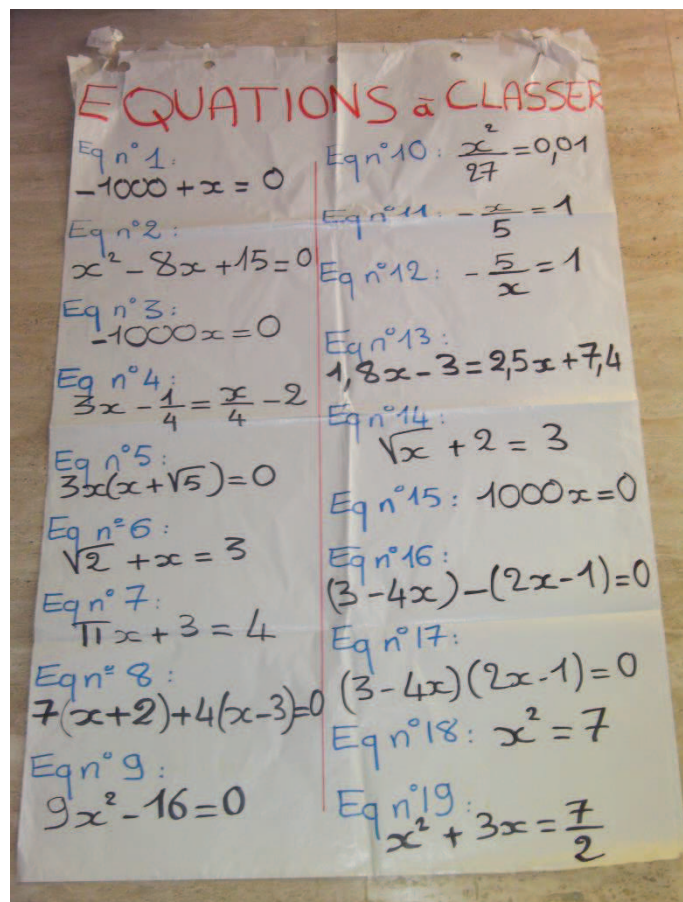 EQUATIONS à CLASSER
Eq n°1:
-1000 + x = 0
Eq n°2:
x² - 8x + 15 = 0
Eq n°3:
-1000x = 0
Eq n°4:
3x - 1/4 = x/4 - 2
Eq n°5:
3x(x + √5) = 0
Eq n°6:
√2 + x = 3
Eq n°7:
πx + 3 = 4
Eq n° 8:
7(x+2) + 4(x-3) = 0
Eq n°9:
9x² - 16 = 0
Eq n°10: x²/27 = 0,01
Eq n°11: - x/5 = 1
Eq n°12: - 5/x = 1
Eq n°13:
1,8x - 3 = 2,5x + 7,4
Eq n°14:
√x + 2 = 3
Eq n°15: 1000x = 0
Eq n°16:
(3 - 4x) - (2x - 1) = 0
Eq n°17:
(3 - 4x)(2x - 1) = 0
Eq n°18: x² = 7
Eq n°19:
x² + 3x = 7/2